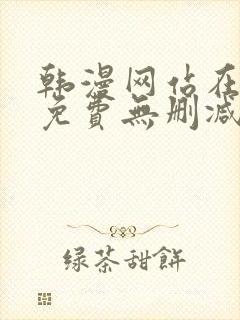 韩漫网站在
免費無删减
绿茶甜餅